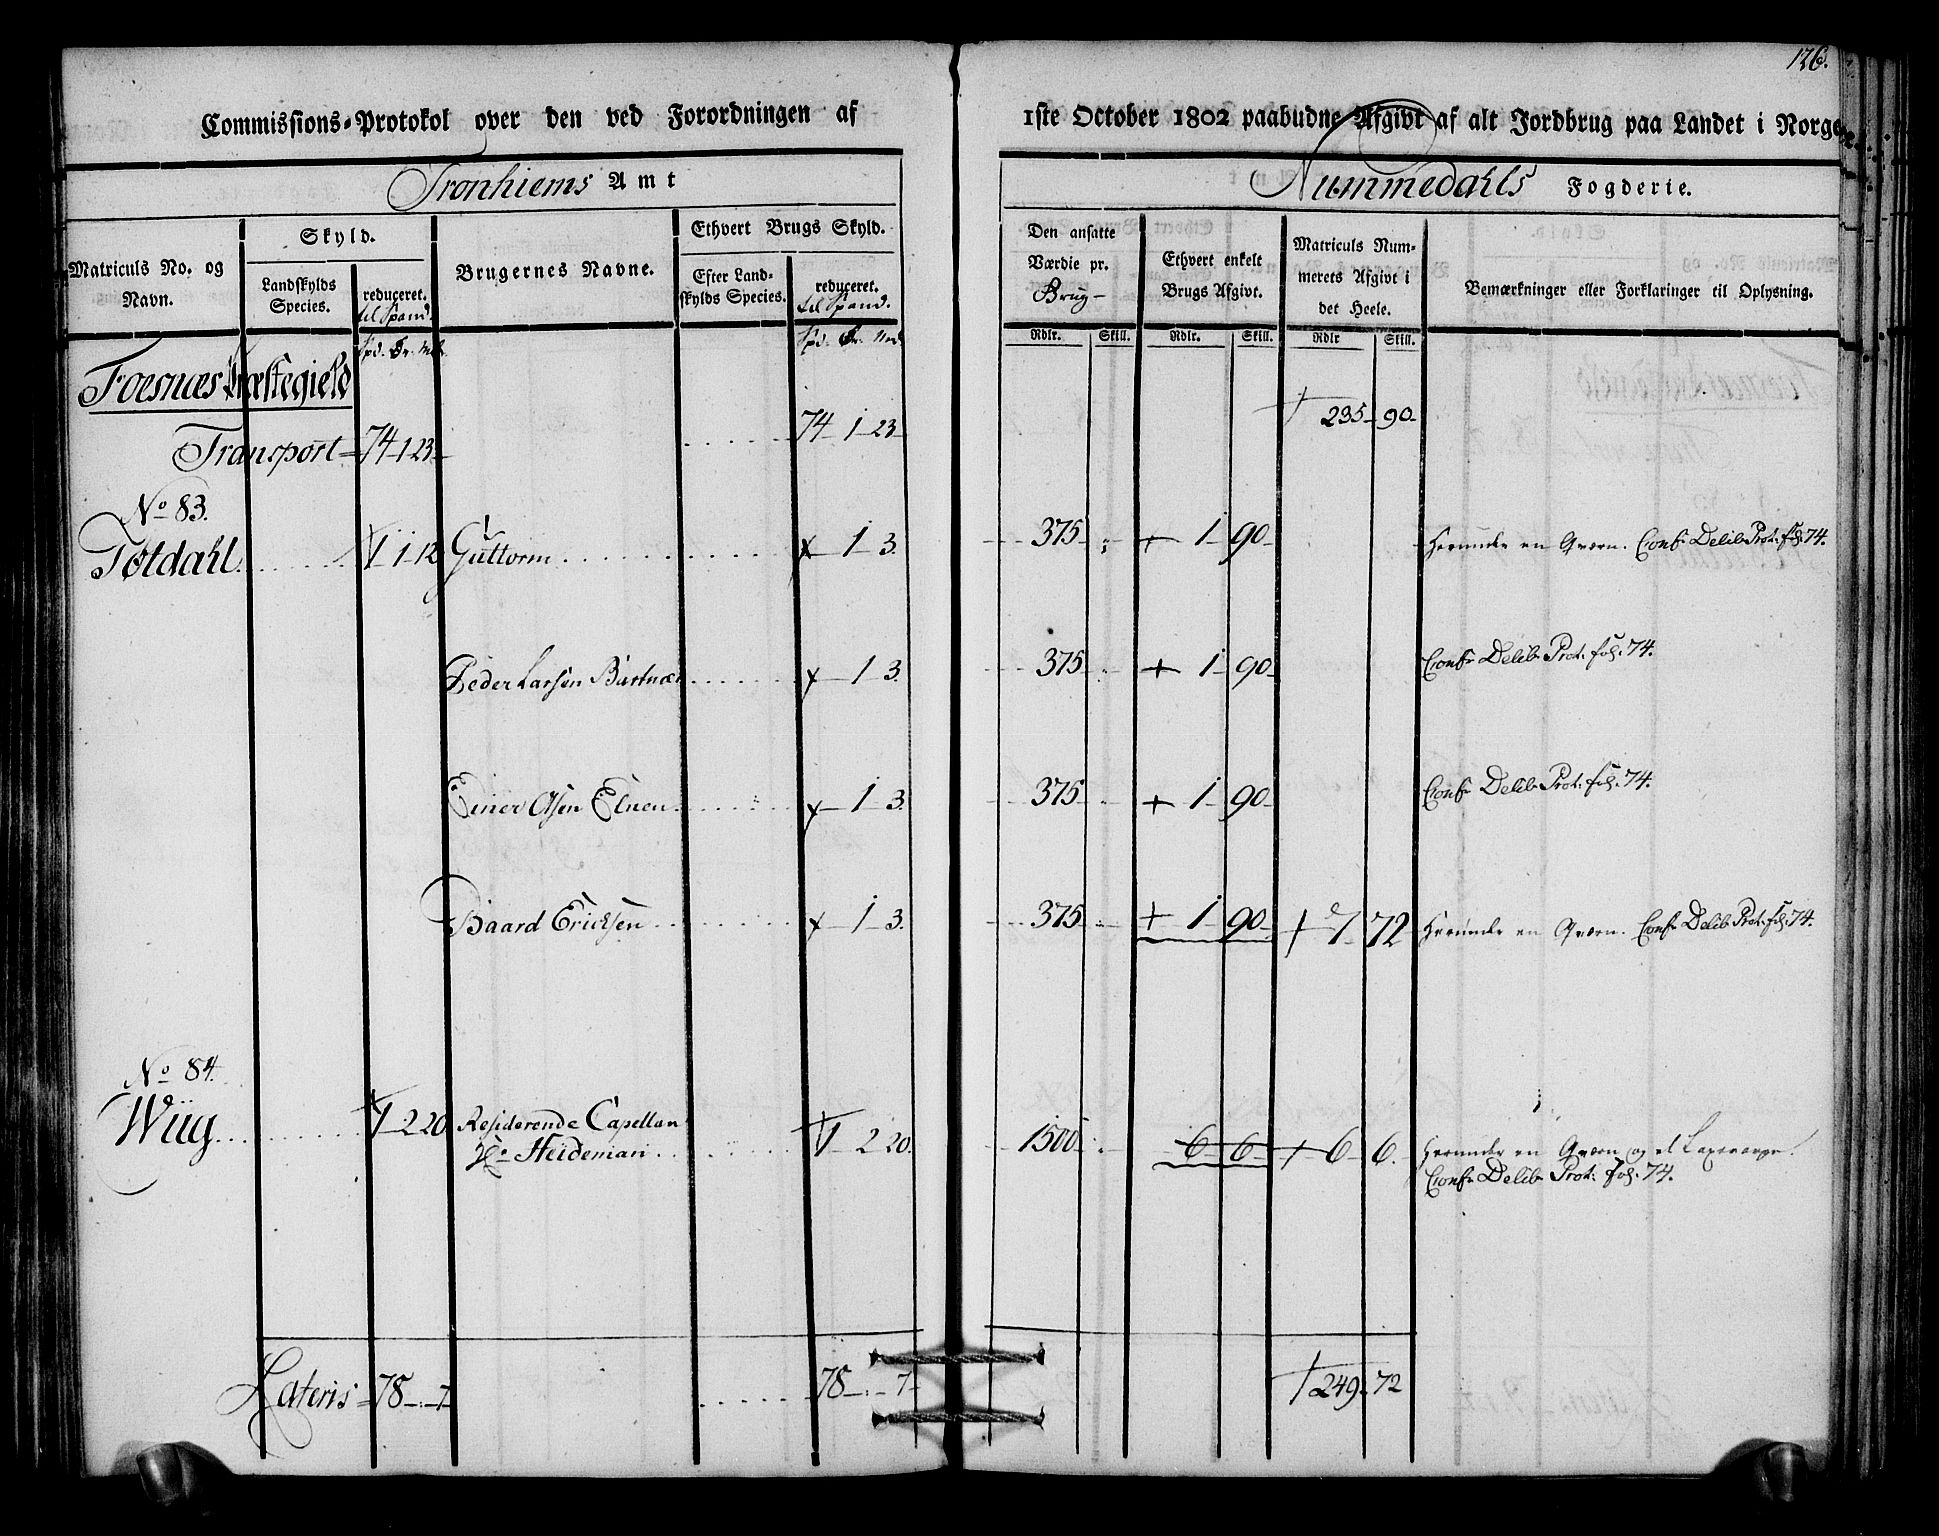 126.
Commissions-Protokol over den ved Forordningen af 1ste October 1802 paabudne Afgivt af alt Jordbrug paa Landet i Norge
Tronhiems Amt
Nummedahls Fogderie.
Matriculs No. og Navn.
Skyld.
Landskylds Species.
reduceret. til Spand.
Brugernes Navne.
Ethvert Brugs Skyld.
Efter Landskylds Species.
reduceret. til Spand.
Den ansatte Værdie pr. Brug
Ethvert enkelt Brugs Afgivt.
Matriculs Nummerets Afgivt i det Heele.
Bemærkninger eller Forklaringer til Oplysning.
Spd. Ør. Mrk.
Spd. Ør. Mrk.
Rdlr. Skill. Rdlr. Skill. Rdlr Skill.
Foesnæs Præstegield
Transport 74 1 23 74 1 23 235 90
No 83.
Totdahl 1 1 12 Guttorm 1 3. 375 1 90 Herunder en Qværn. Confr Delib Prot: fol: 74.
Peder Larsen 1 3. 375 1 90 Confr Delib Prot: fol: 74.
Einer Olsen 1 3. 375 1 90 Confr Delib Prot: fol: 74.
Baard Ericksen 1 3. 375 1 90 7 72 Herunder en Qværn. Confr Delib Prot: fol: 74.
No 84.
Wiig 1 2 20 Residerende Capellan
Hr Heideman 1 2 20. 1500 6 6 6 6. Herunder en Qværn og et
Confr Delib Prot: fol: 74.
Lateris 78 " 7 78 " 7 249 72